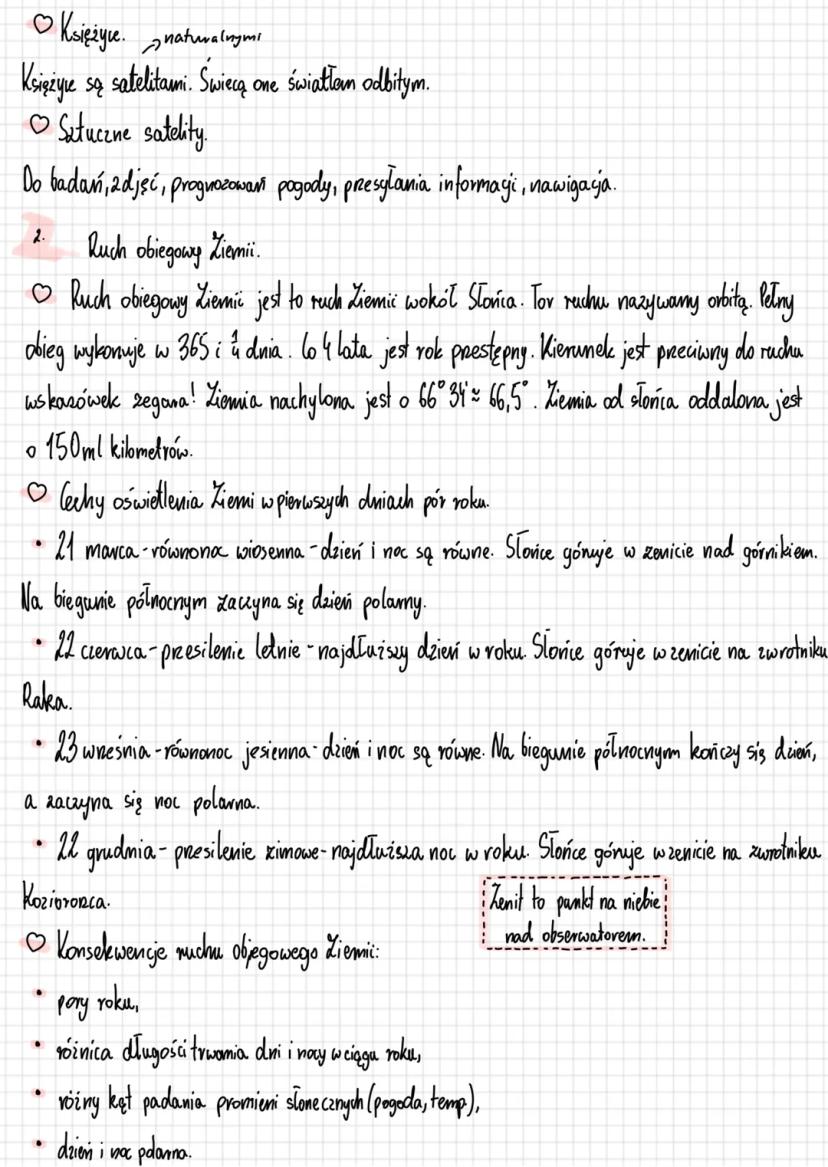 ♡ Księżyce. ↗ naturalnymi
Księżyce są satelitami. Świecą one światłem odbitym.
♡ Sztuczne satelity.
Do badań, zdjęć, prognozowań pogody, przesyłania informacji, nawigacja.
2. Ruch obiegowy Ziemii.
♡ Ruch obiegowy Ziemii jest to ruch Ziemii wokół Słońca. Tor ruchu nazywany orbitą. Pełny
obieg wykonuje w 365 i 1/4 dnia. Co 4 lata jest rok przestępny. Kierunek jest przeciwny do ruchu
wskazówek zegara! Ziemia nachylona jest o 66° 34' ≈ 66,5°. Ziemia od słońca oddalona jest
o 150ml kilometrów.
♡ Cechy oświetlenia Ziemi w pierwszych dniach pór roku.
• 21 marca - równonoc wiosenna - dzień i noc są równe. Słońce góruje w zenicie nad górnikiem.
Na biegunie północnym zaczyna się dzień polarny.
• 22 czerwca - przesilenie letnie - najdłuższy dzień w roku. Słońce góruje w zenicie na zwrotniku
Raka.
• 23 września - równonoc jesienna - dzień i noc są równe. Na biegunie północnym kończy się dzień,
a zaczyna się noc polarna.
• 22 grudnia - przesilenie zimowe - najdłuższa noc w roku. Słońce góruje w zenicie na zwrotniku
Koziorożca.
Zenit to punkt na niebie
nad obserwatorem.
♡ Konsekwencje ruchu obiegowego Ziemii:
• pory roku,
• różnica długości trwania dni i nocy w ciągu roku,
• różny kąt padania promieni słonecznych (pogoda, temp),
• dzień i noc polarna.